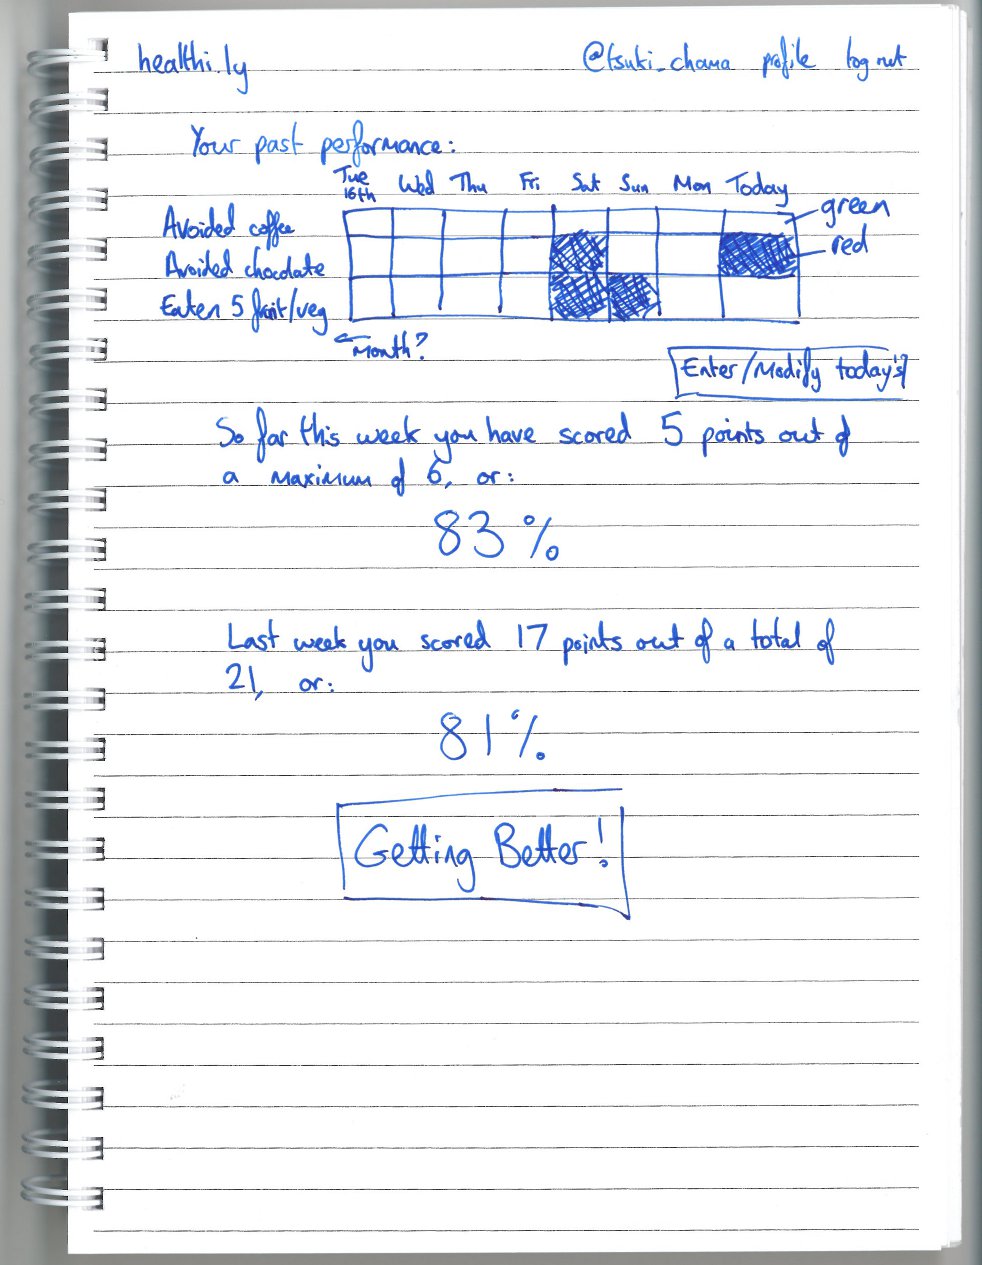 healthi.ly @tsuki_chama profile log out
Your past performance:
Tue 16th Wed Thu Fri Sat Sun Mon Today
green
Avoided coffee
red
Avoided chocolate
Eaten 5 fruit/veg
← Month?
Enter/Modify today's?
So far this week you have scored 5 points out of
a maximum of 6, or:
83%
Last week you scored 17 points out of a total of
21, or:
81%
Getting Better!